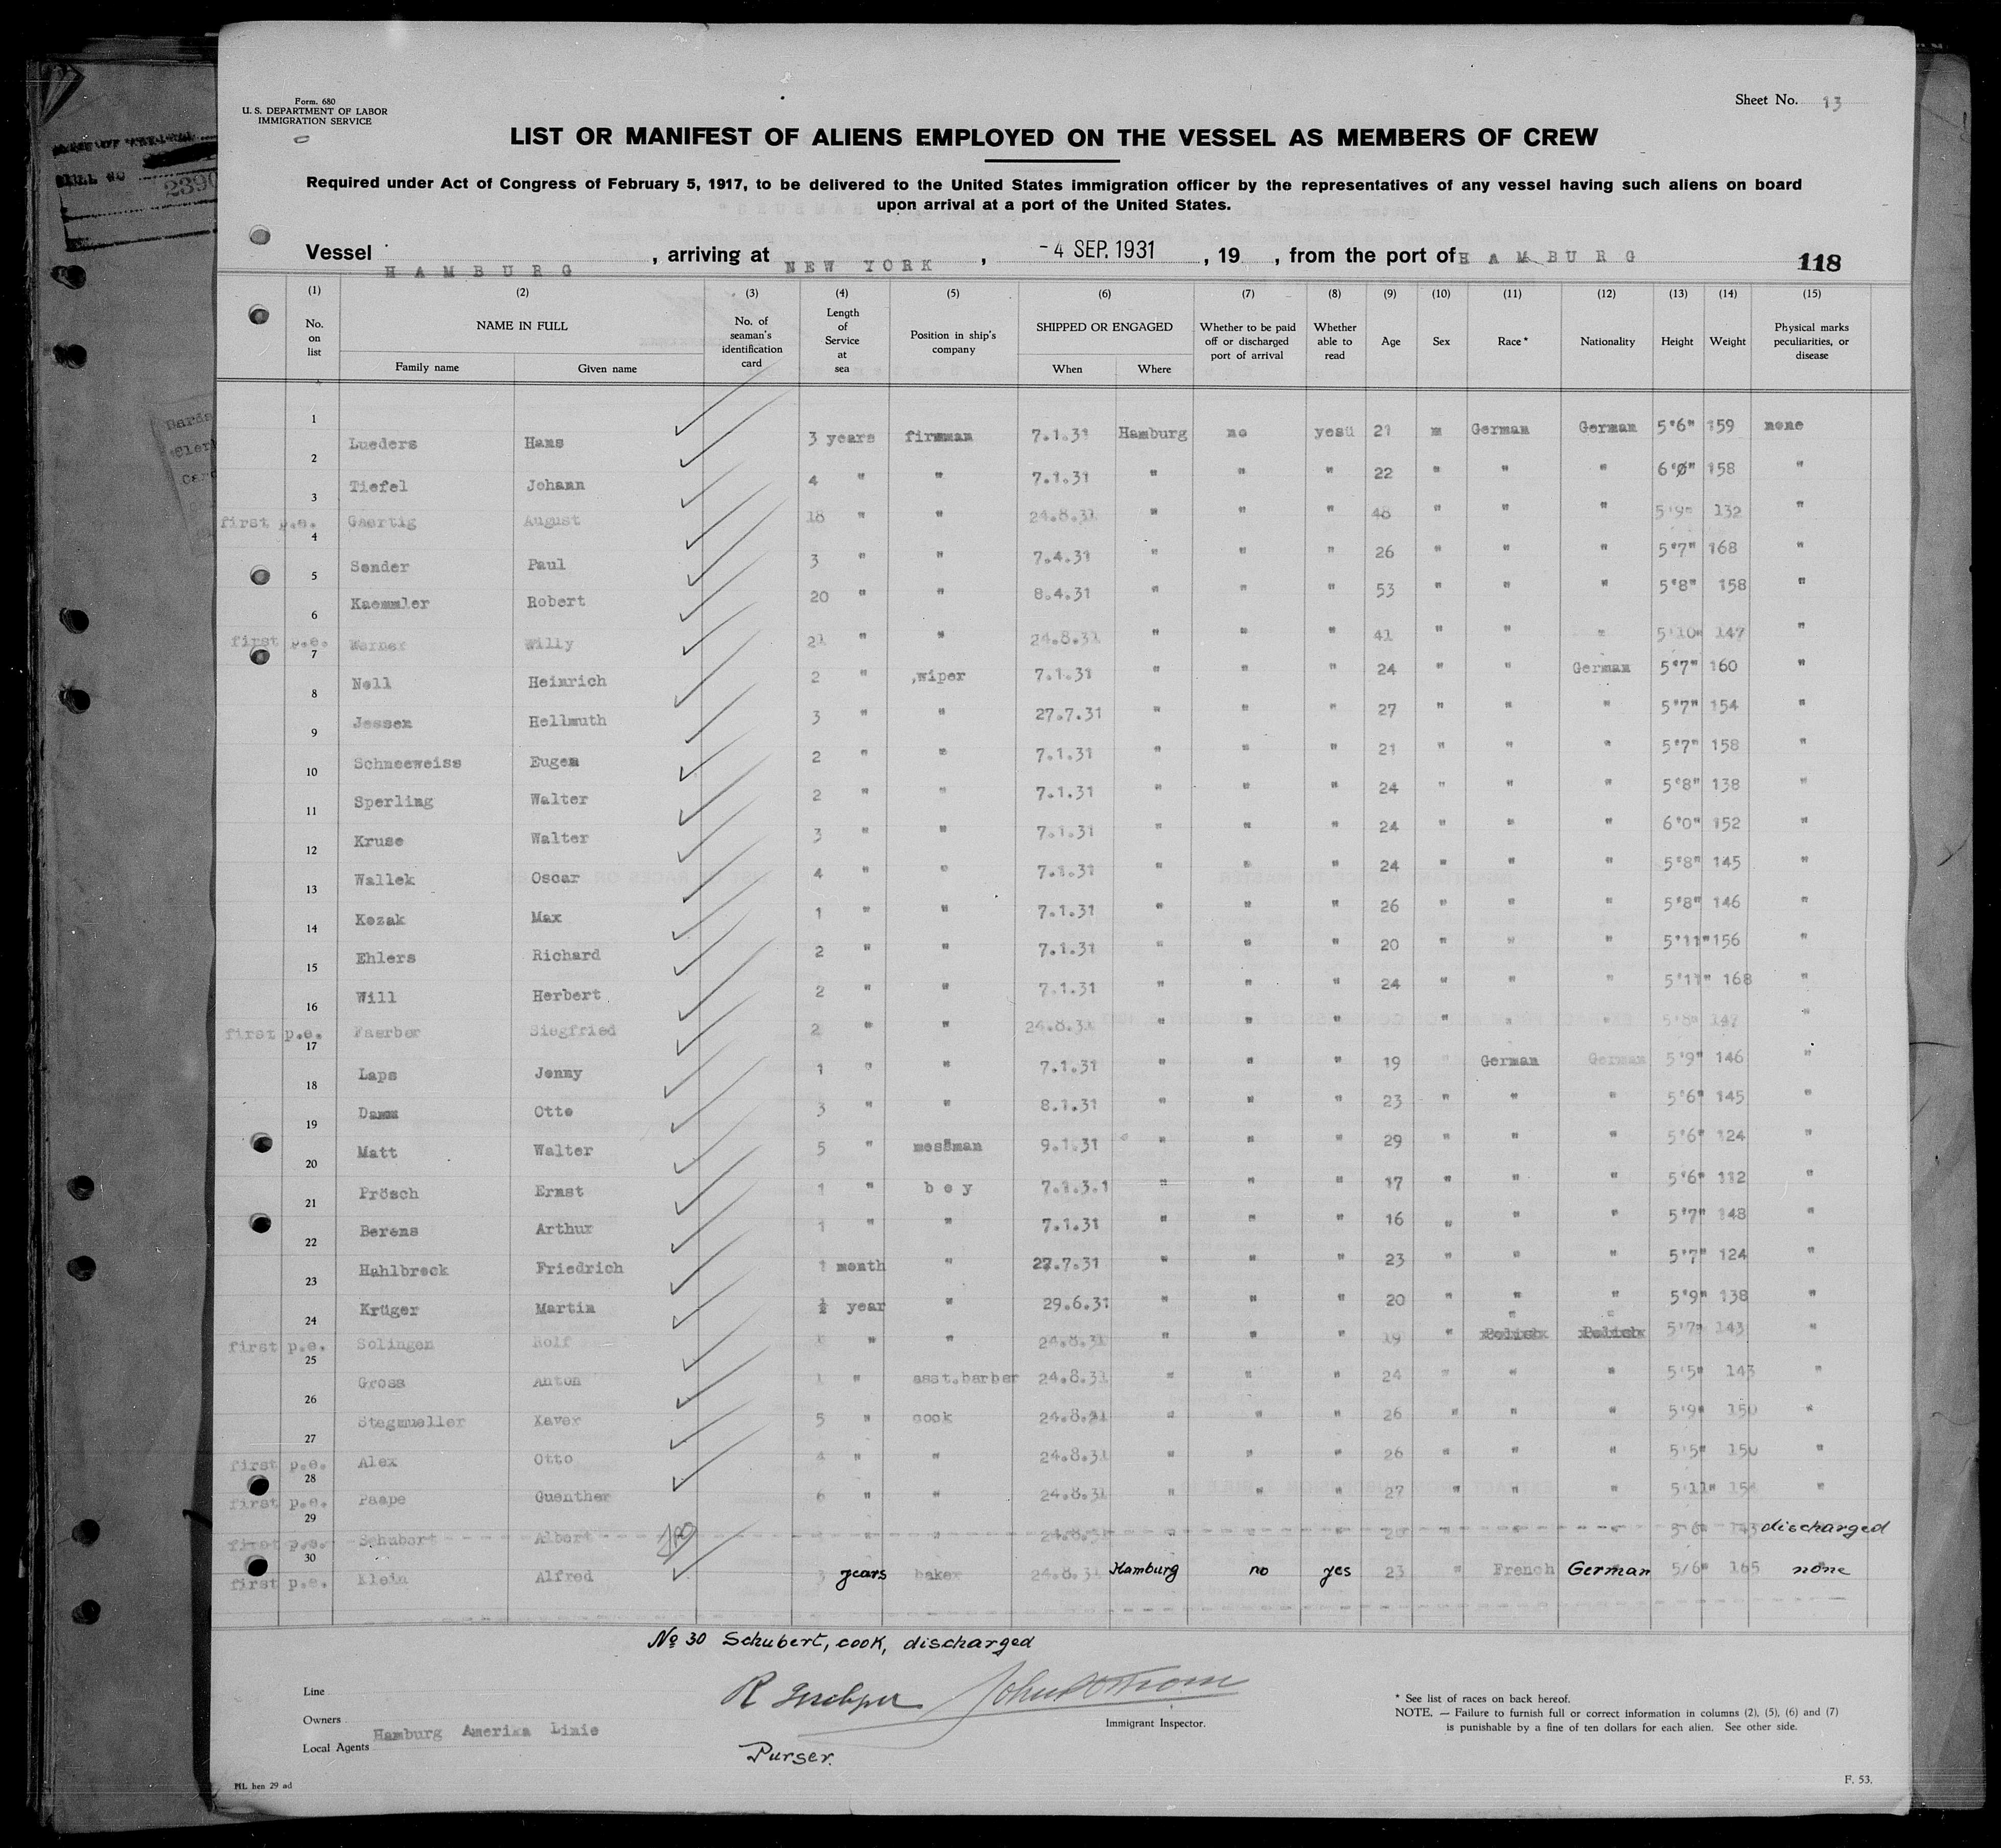 Form. 680
U. S. DEPARTMENT OF LABOR
IMMIGRATION SERVICE
Sheet No. 13
LIST OR MANIFEST OF ALIENS EMPLOYED ON THE VESSEL AS MEMBERS OF CREW
Required under Act of Congress of February 5, 1917, to be delivered to the United States immigration officer by the representatives of any vessel having such aliens on board
upon arrival at a port of the United States.
Vessel HAMBURG, arriving at NEW YORK, -4 SEP. 1931, 19 , from the port of HAMBURG 118
(1) (2) (3) (4) (5) (6) (7) (8) (9) (10) (11) (12) (13) (14) (15)
No. on list NAME IN FULL Family name Given name No. of seaman's identification card Length of Service at sea Position in ship's company SHIPPED OR ENGAGED When Where Whether to be paid off or discharged port of arrival Whether able to read Age Sex Race* Nationality Height Weight Physical marks peculiarities, or disease
1 Lueders Hans 3 years 7.1.31 Hamburg no yes 21 m German German 5'6" 159 none
2 Tiefel Johann 4 " " 7.1.31 " " " 22 " " " 6'0" 158 "
first p.e. 3 Gaertig August 18 " " 24.8.31 " " " 48 " " " 5'9" 132 "
4 Sender Paul 3 " " 7.4.31 " " " 26 " " " 5'7" 168 "
5 Kaemmler Robert 20 " " 8.4.31 " " " 53 " " " 5'8" 158 "
first p.e. 6 Werner Willy 21 " " 24.8.31 " " " 41 " " " 5'10" 147 "
7 Nell Heinrich 2 " ,wiper 7.1.31 " " " 24 " " German 5'7" 160 "
8 Jessen Hellmuth 3 " " 27.7.31 " " " 27 " " " 5'7" 154 "
9 Schneeweiss Eugen 2 " " 7.1.31 " " " 21 " " " 5'7" 158 "
10 Sperling Walter 2 " " 7.1.31 " " " 24 " " " 5'8" 138 "
11 Kruse Walter 3 " " 7.1.31 " " " 24 " " " 6'0" 152 "
12 Wallek Oscar 4 " " 7.1.31 " " " 24 " " " 5'8" 145 "
13 Kozak Max 1 " " 7.1.31 " " " 26 " " " 5'8" 146 "
14 Ehlers Richard 2 " " 7.1.31 " " " 20 " " " 5'11" 156 "
15 Will Herbert 2 " " 7.1.31 " " " 24 " " " 5'11" 168 "
first p.e. 16 Faerber Siegfried 2 " " 24.8.31 " " " " " " 5'8" 147 "
17 Laps Jonny 1 " " 7.1.31 " " " 19 " German German 5'9" 146 "
18 Damm Otto 3 " " 8.1.31 " " " 23 " " " 5'6" 145 "
19 Matt Walter 5 " messman 9.1.31 " " " 29 " " " 5'6" 124 "
20 Prösch Ernst 1 " boy 7.1.3.1 " " " 17 " " " 5'6" 112 "
21 Berens Arthur 1 " " 7.1.31 " " " 16 " " " 5'7" 148 "
22 Hahlbrock Friedrich 1 month " 27.7.31 " " " 23 " " " 5'7" 124 "
23 Krüger Martin ½ year " 29.6.31 " " " 20 " " " 5'9" 138 "
first p.e. 24 Solingen Rolf " " 24.8.31 " " " 19 " " " Polish Polish 5'7" 143 "
25 Gross Anton 1 " asst.barber 24.8.31 " " " 24 " " " 5'5" 143 "
26 Stegmueller Xaver 5 " cook 24.8.31 " " " 26 " " " 5'9" 150 "
first p.e. 27 Alex Otto 4 " " 24.8.31 " " " 26 " " " 5'5" 150 "
first p.e. 28 Paape Guenther 6 " " 24.8.31 " " " 27 " " " 5'11" "
first p.e. 29 Schubert Albert " " 24.8.31 " " " " " " 5'6" 143 discharged
first p.e. 30 Klein Alfred 3 years baker 24.8.31 Hamburg no yes 23 " French German 5/6" 165 none
No 30 Schubert, cook, discharged
Line
Owners Hamburg Amerika Linie
Local Agents
Purser.
Immigrant Inspector.
* See list of races on back hereof.
NOTE. — Failure to furnish full or correct information in columns (2), (5), (6) and (7)
is punishable by a fine of ten dollars for each alien. See other side.
F. 53.